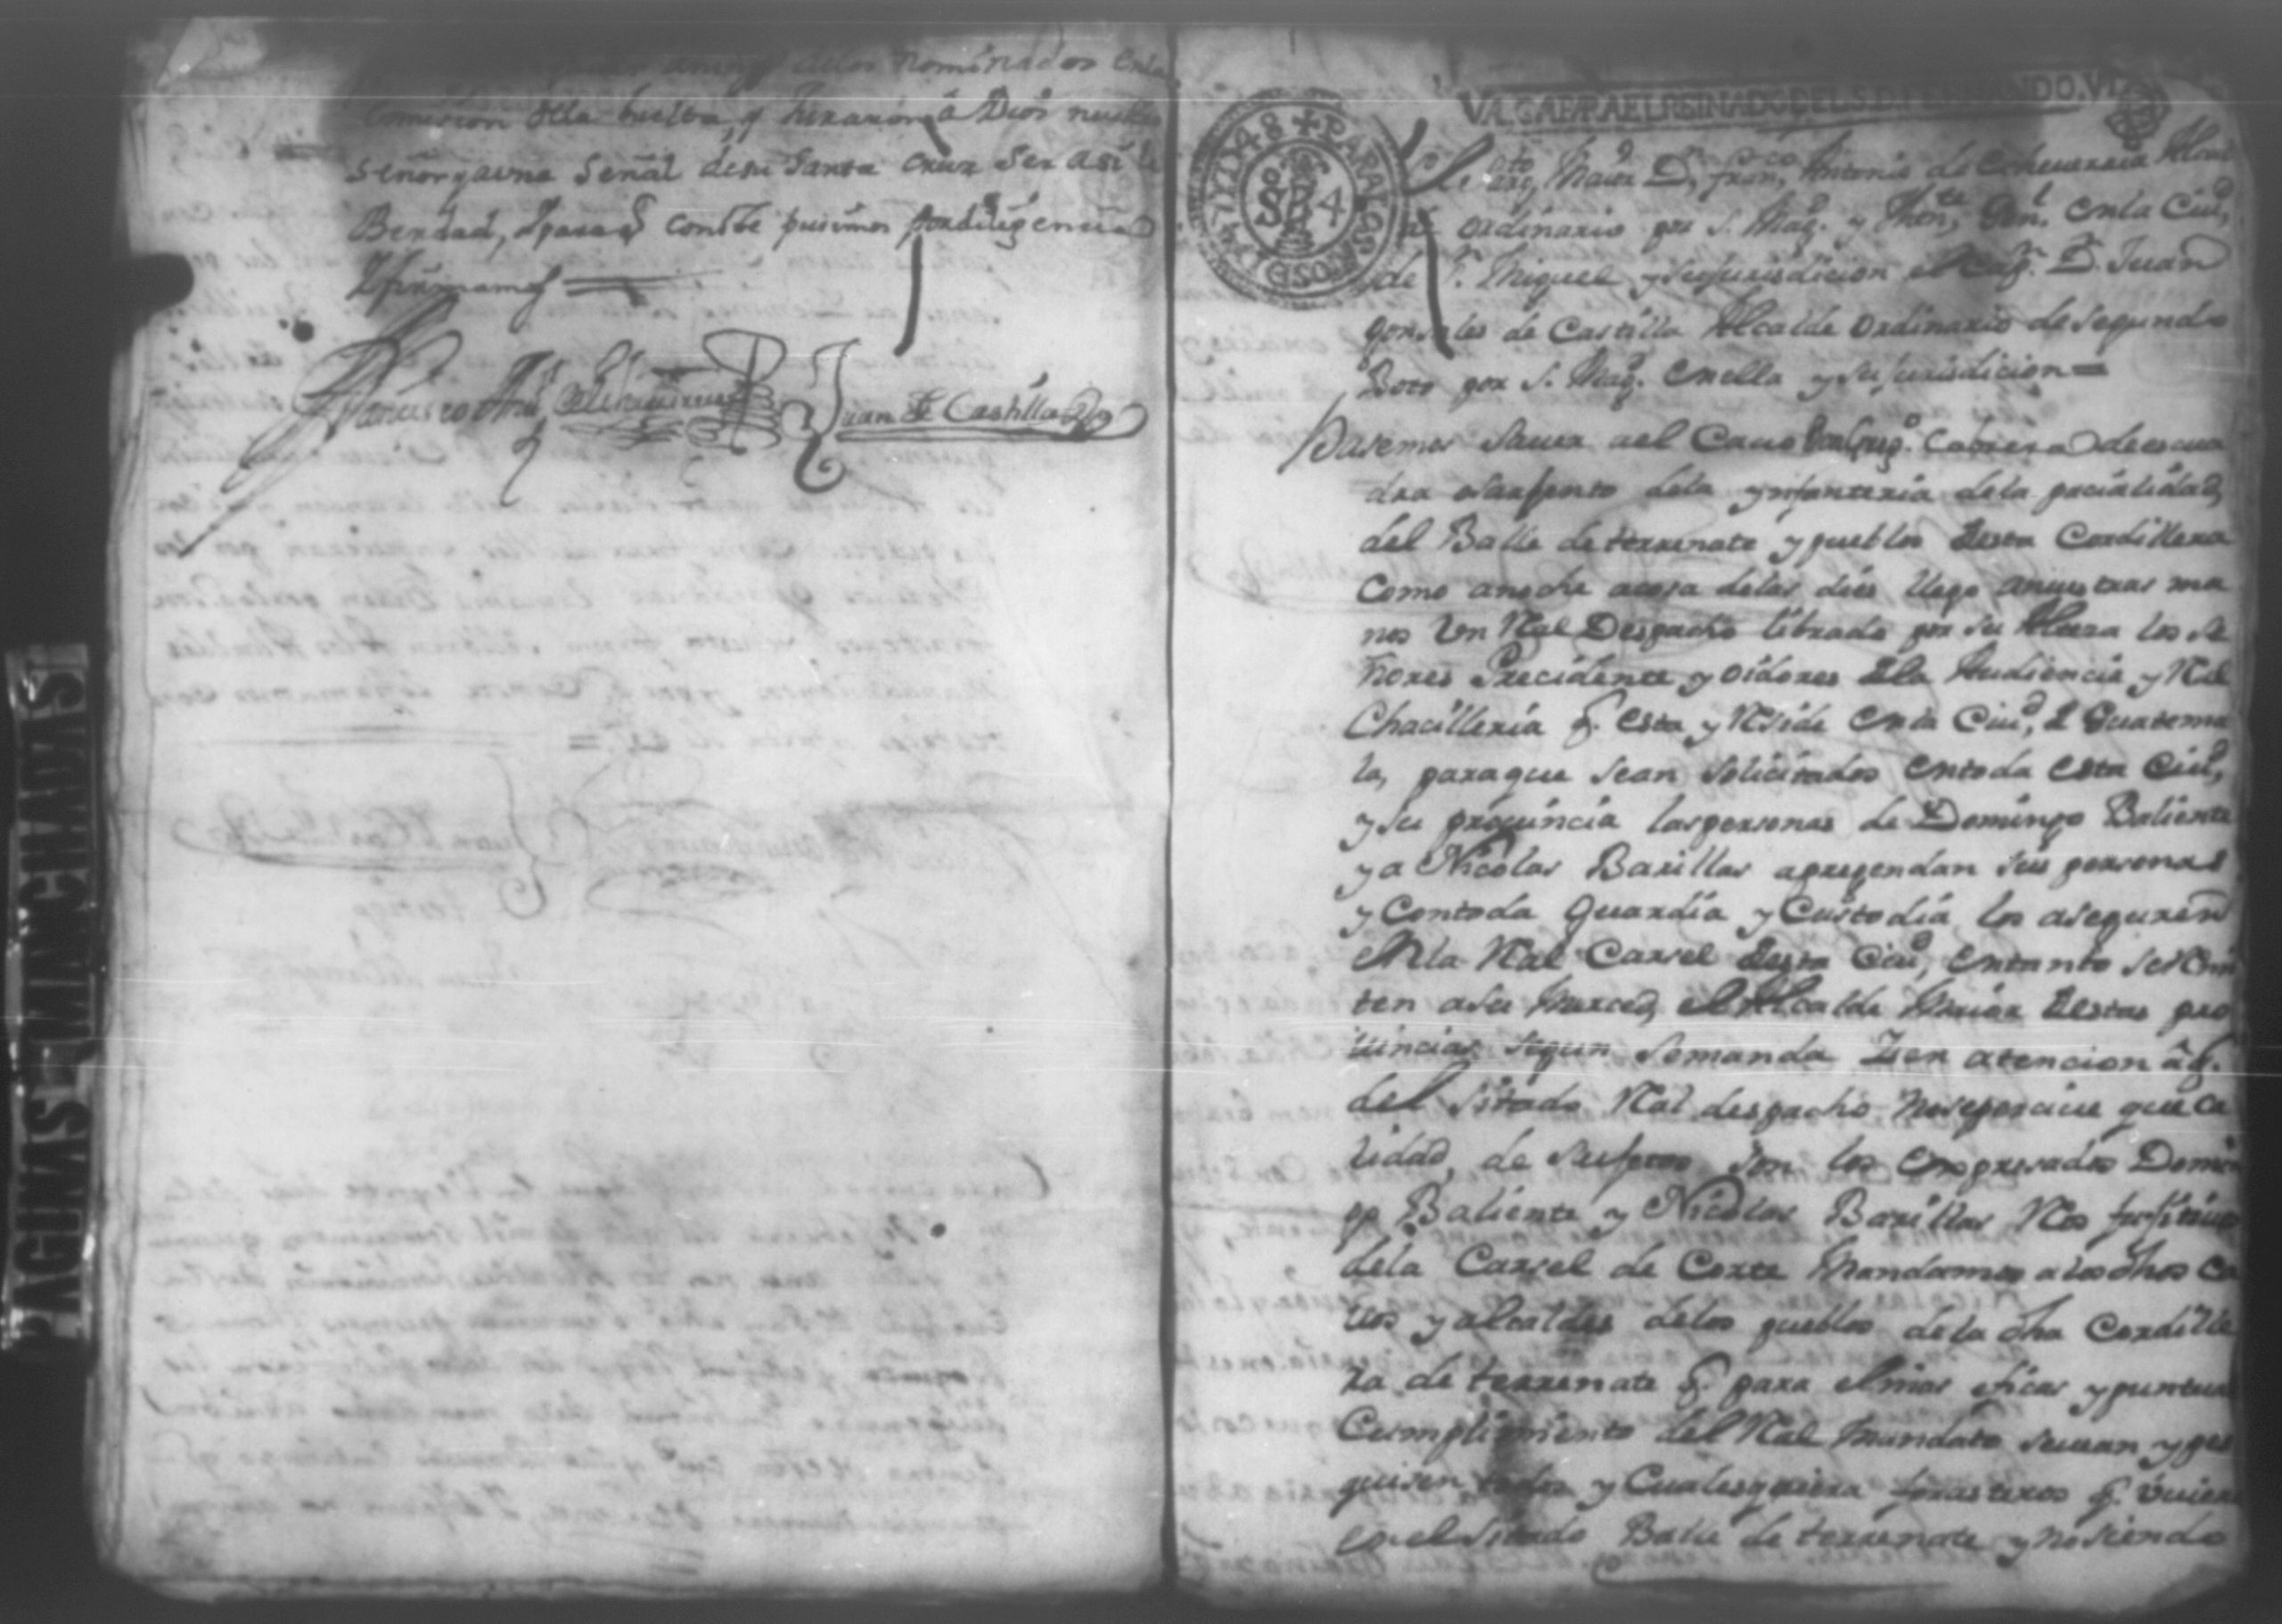 delos nominados enla
Comision dela buelta, y juraron â Dios nuestro
señor y a una señal de su santa cruz ser asi la
Berdad, y para q̃ conste pusimos por diligencia
Y firmamos
Juan G Castilla
PAGINAS MANCHADAS
VALGA PARA EL REINADO DEL S. D. FERNANDO. VI.
PARA LOS AÑOS D 1747 Y 1748
El sarg.to Maior D. Fran.co Antonio de Echevarria Alcal
de ordinario por S. Mag.d y Then.te Gen.l en la Ciu.d
de S. Miguel y su jurisdicion el Cap.n D. Juan
gonsales de Castilla Alcalde ordinario de segundo
Boto por S. Mag.d en ella y su jurisdicion =
Hasemos sauer ael Cauo Cabrera de escua
dra o sarjento dela ynfanteria dela parcialidad
del Balle de terrenate y pueblos desta Cordillera
como anoche a ora delas dies llego a nuestras ma
nos Un Rl Despacho librado por su Alteza los se
ñores Precidente y oidores dela Audiencia y Rl
Chacilleria q. esta y Reside enla Ciu.d de Guatema
la, para que sean solicitados en toda esta Ciu.d
y su prouincia las personas de Domingo Baliente
y a Nicolas Barillas aprependan sus personas
y con toda guardia y Custodia los aseguren
en la Rl Carsel desta Ciu.d entanto se remi
ten a su Merced el Alcalde Maior destas pro
uincias segun se manda Y en atencion â q.
del sitado Rl despacho no se persiue que ca
lidad de sujetos son los expresados Domin
go Baliente y Nicolas Barillas Reos
dela Carsel de Corte Mandamos a los dhos ca
uos y alcaldes delos pueblos dela dha Cordille
ra de terrenate q. para el mas eficas y puntual
Cumplimiento del Rl Mandato
quisen todos y Cualesquiera forasteros q.
en el sitado Balle de terrenate y no siendo